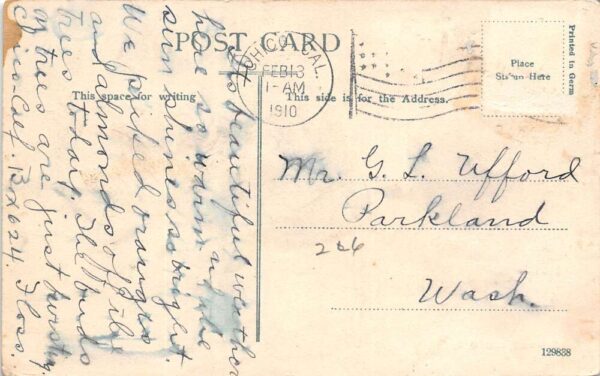 POST CARD
CHICO, CAL.
FEB 13
1-AM
1910
Place
Stamp Here
Printed in Germ
This space for writing
This side is for the Address.
Its beautiful weather
here so warm n the
sun shines so bright.
We picked oranges
and almonds off the
trees today. The buds
on trees are just bursting.
Chico-Calif. Bx 624. Floss.
Mr. G. L. Ufford
Parkland
226
Wash.
129838